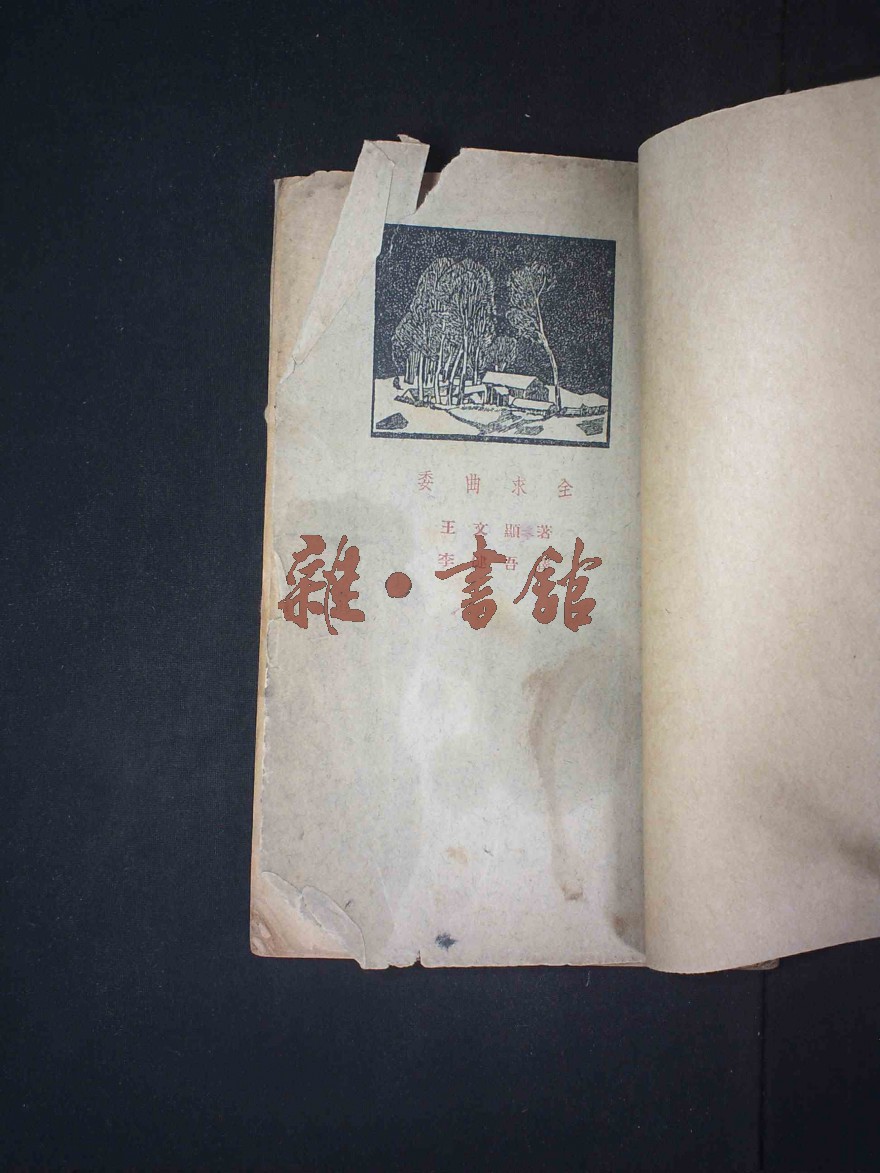 委曲求全
王文顯著
李 吾
雜·書館